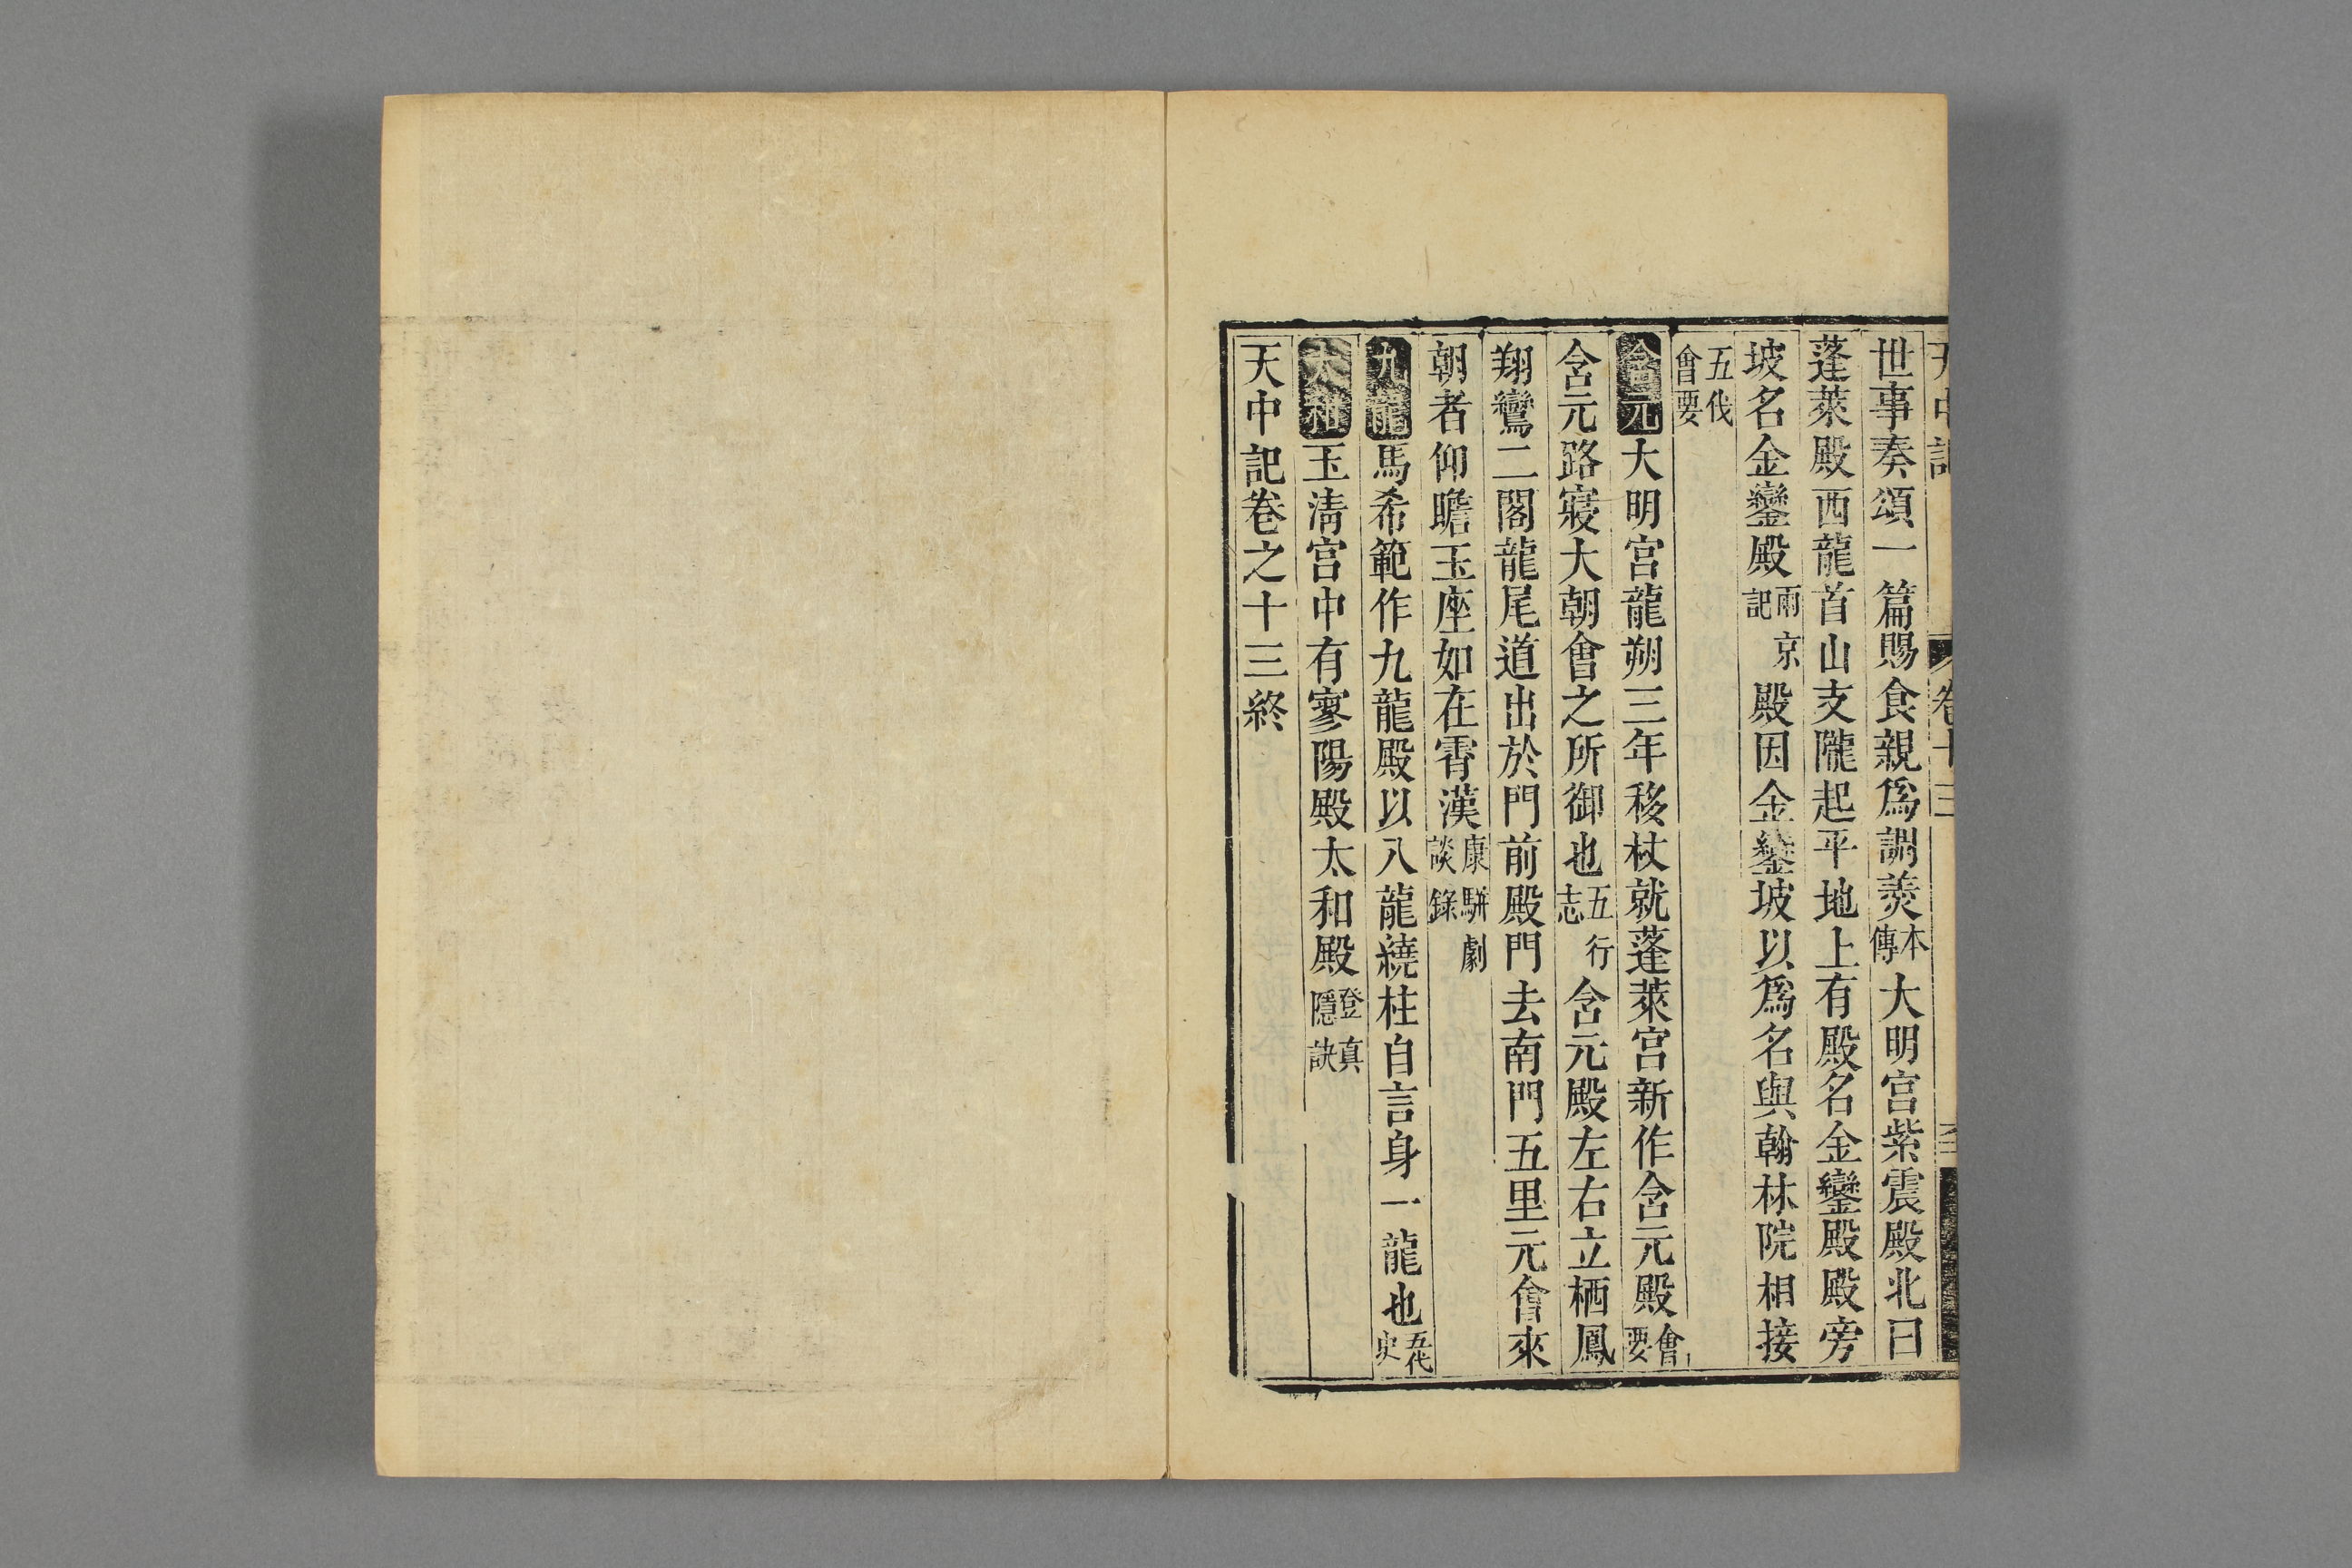 世事奏頌一篇賜食親爲調羮本傳大明宮紫震殿北曰
蓬萊殿西龍首山支隴起平地上有殿名金鑾殿殿旁
坡名金鑾殿兩京記殿因金鑾坡以爲名與翰林院相接
五代會要
含元大明宮龍朔三年移杖就蓬萊宮新作含元殿會要
含元路寢大朝會之所御也五行志含元殿左右立栖鳳
翔鸞二閣龍尾道出於門前殿門去南門五里元會來
朝者仰瞻玉座如在霄漢康駢劇談錄
九龍馬希範作九龍殿以八龍繞柱自言身一龍也五代史
太和玉淸宮中有寥陽殿太和殿登真隱訣
天中記卷之十三終